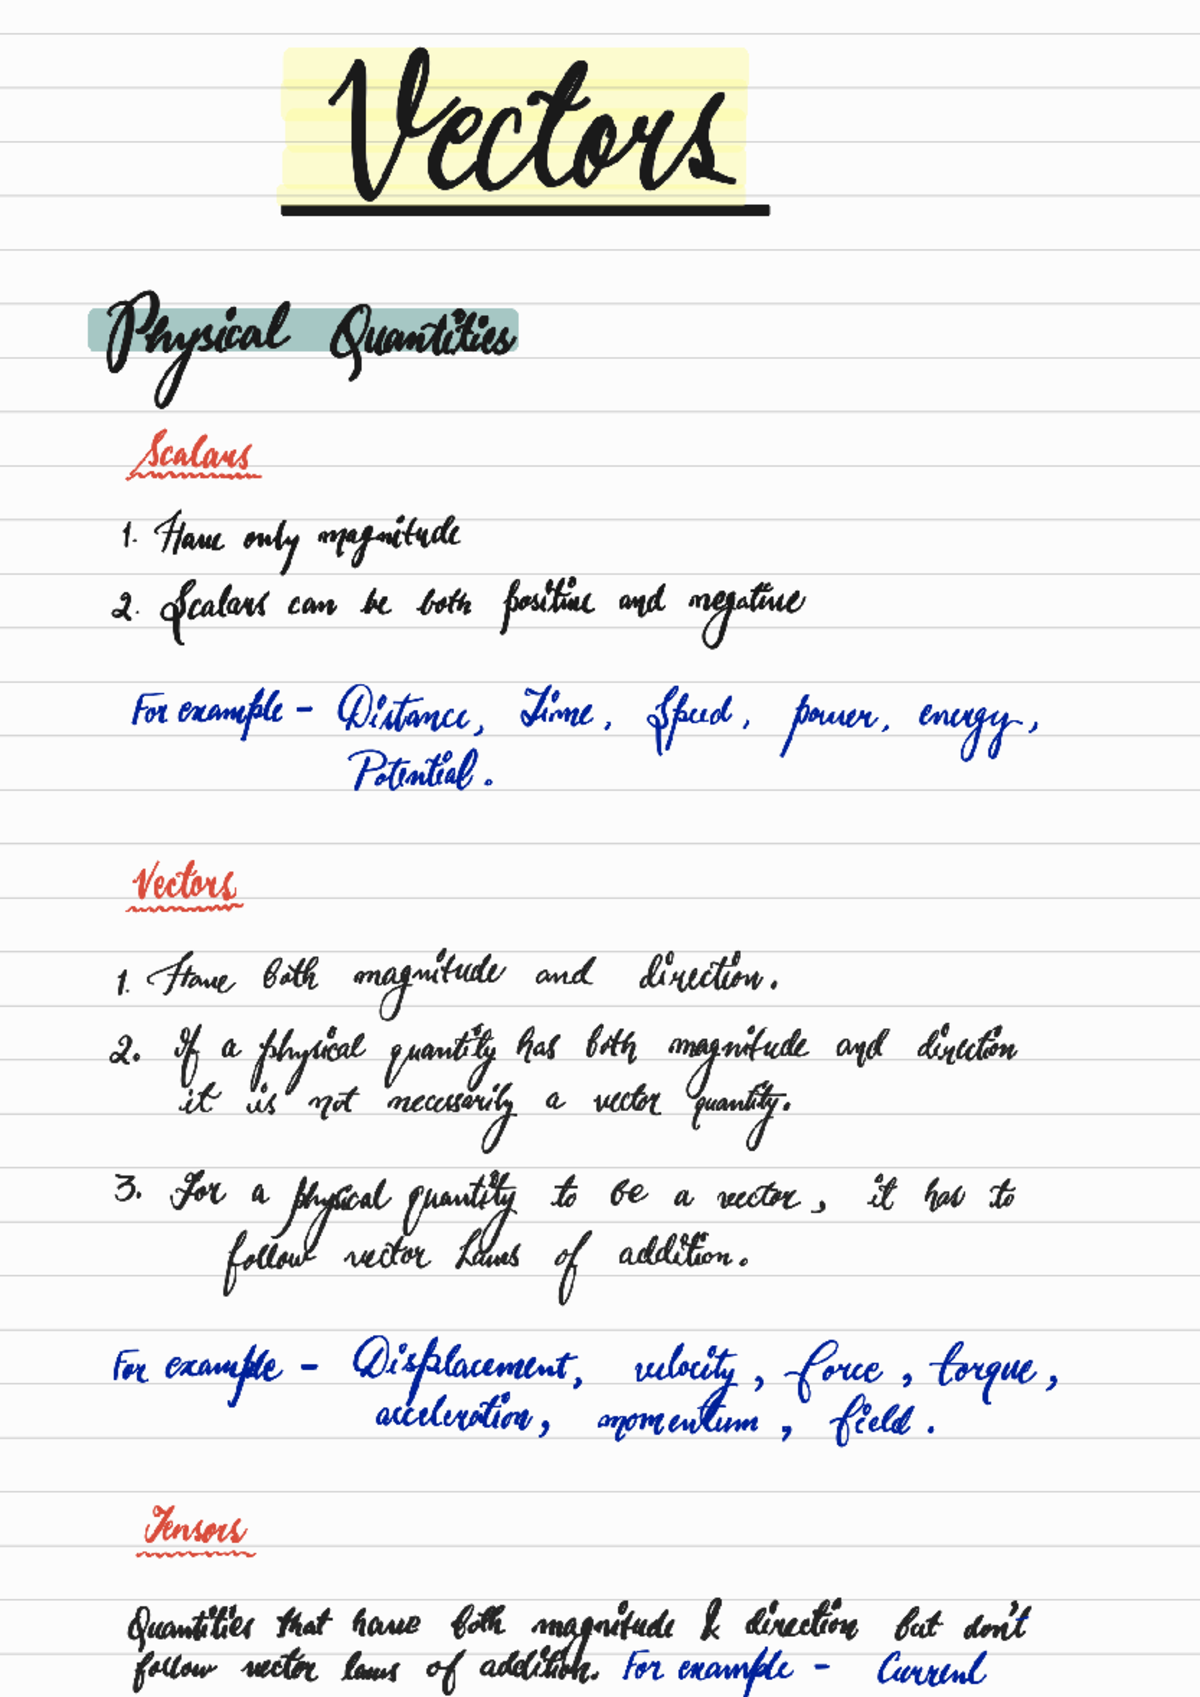 Vectors
Physical Quantities
Scalars
1. Have only magnitude
2. Scalars can be both positive and negative
For example - Distance, Time, Speed, power, energy,
Potential.
Vectors
1. Have both magnitude and direction.
2. If a physical quantity has both magnitude and direction
it is not necessarily a vector quantity.
3. For a physical quantity to be a vector, it has to
follow vector laws of addition.
For example - Displacement, velocity, force, torque,
acceleration, momentum, field.
Tensors
Quantities that have both magnitude & direction but don't
follow vector laws of addition. For example - Current